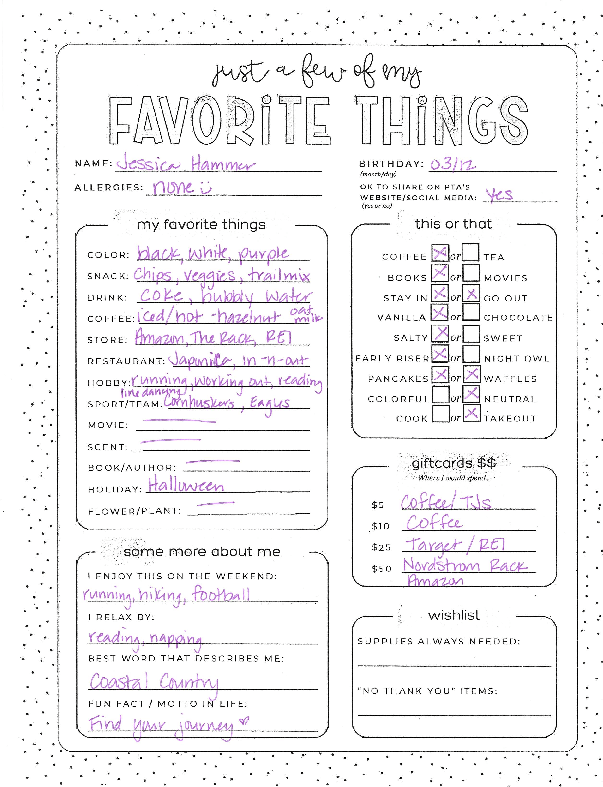 just a few of my
FAVORITE THINGS
NAME: Jessica Hammer
ALLERGIES: none
BIRTHDAY: 03/12
(month/day)
OK TO SHARE ON PTA'S
WEBSITE/SOCIAL MEDIA: Yes
(Yes or no)
my favorite things
COLOR: black, white, purple
SNACK: Chips, veggies, trailmix
DRINK: coke, bubbly water
COFFEE: iced/hot - hazelnut oat milk
STORE: Amazon, The Rack, REI
RESTAURANT: Japonica, in-n-out
HOBBY: running, working out, reading
line dancing
SPORT/TEAM: Cornhuskers, Eagles
MOVIE:
SCENT:
BOOK/AUTHOR:
HOLIDAY: Halloween
FLOWER/PLANT:
this or that
COFFEE X or TEA
BOOKS X or MOVIES
STAY IN X or X GO OUT
VANILLA X or CHOCOLATE
SALTY X or SWEET
EARLY RISER X or NIGHT OWL
PANCAKES X or X WAFFLES
COLORFUL or X NEUTRAL
COOK or X TAKEOUT
giftcards $$
Where I would spend...
$5 Coffee/TJs
$10 Coffee
$25 Target / REI
$50 Nordstrom Rack
Amazon
some more about me
I ENJOY THIS ON THE WEEKEND:
running, hiking, football
I RELAX BY:
reading, napping
BEST WORD THAT DESCRIBES ME:
Coastal Country
FUN FACT / MOTTO IN LIFE:
Find your journey
wishlist
SUPPLIES ALWAYS NEEDED:
"NO THANK YOU" ITEMS: